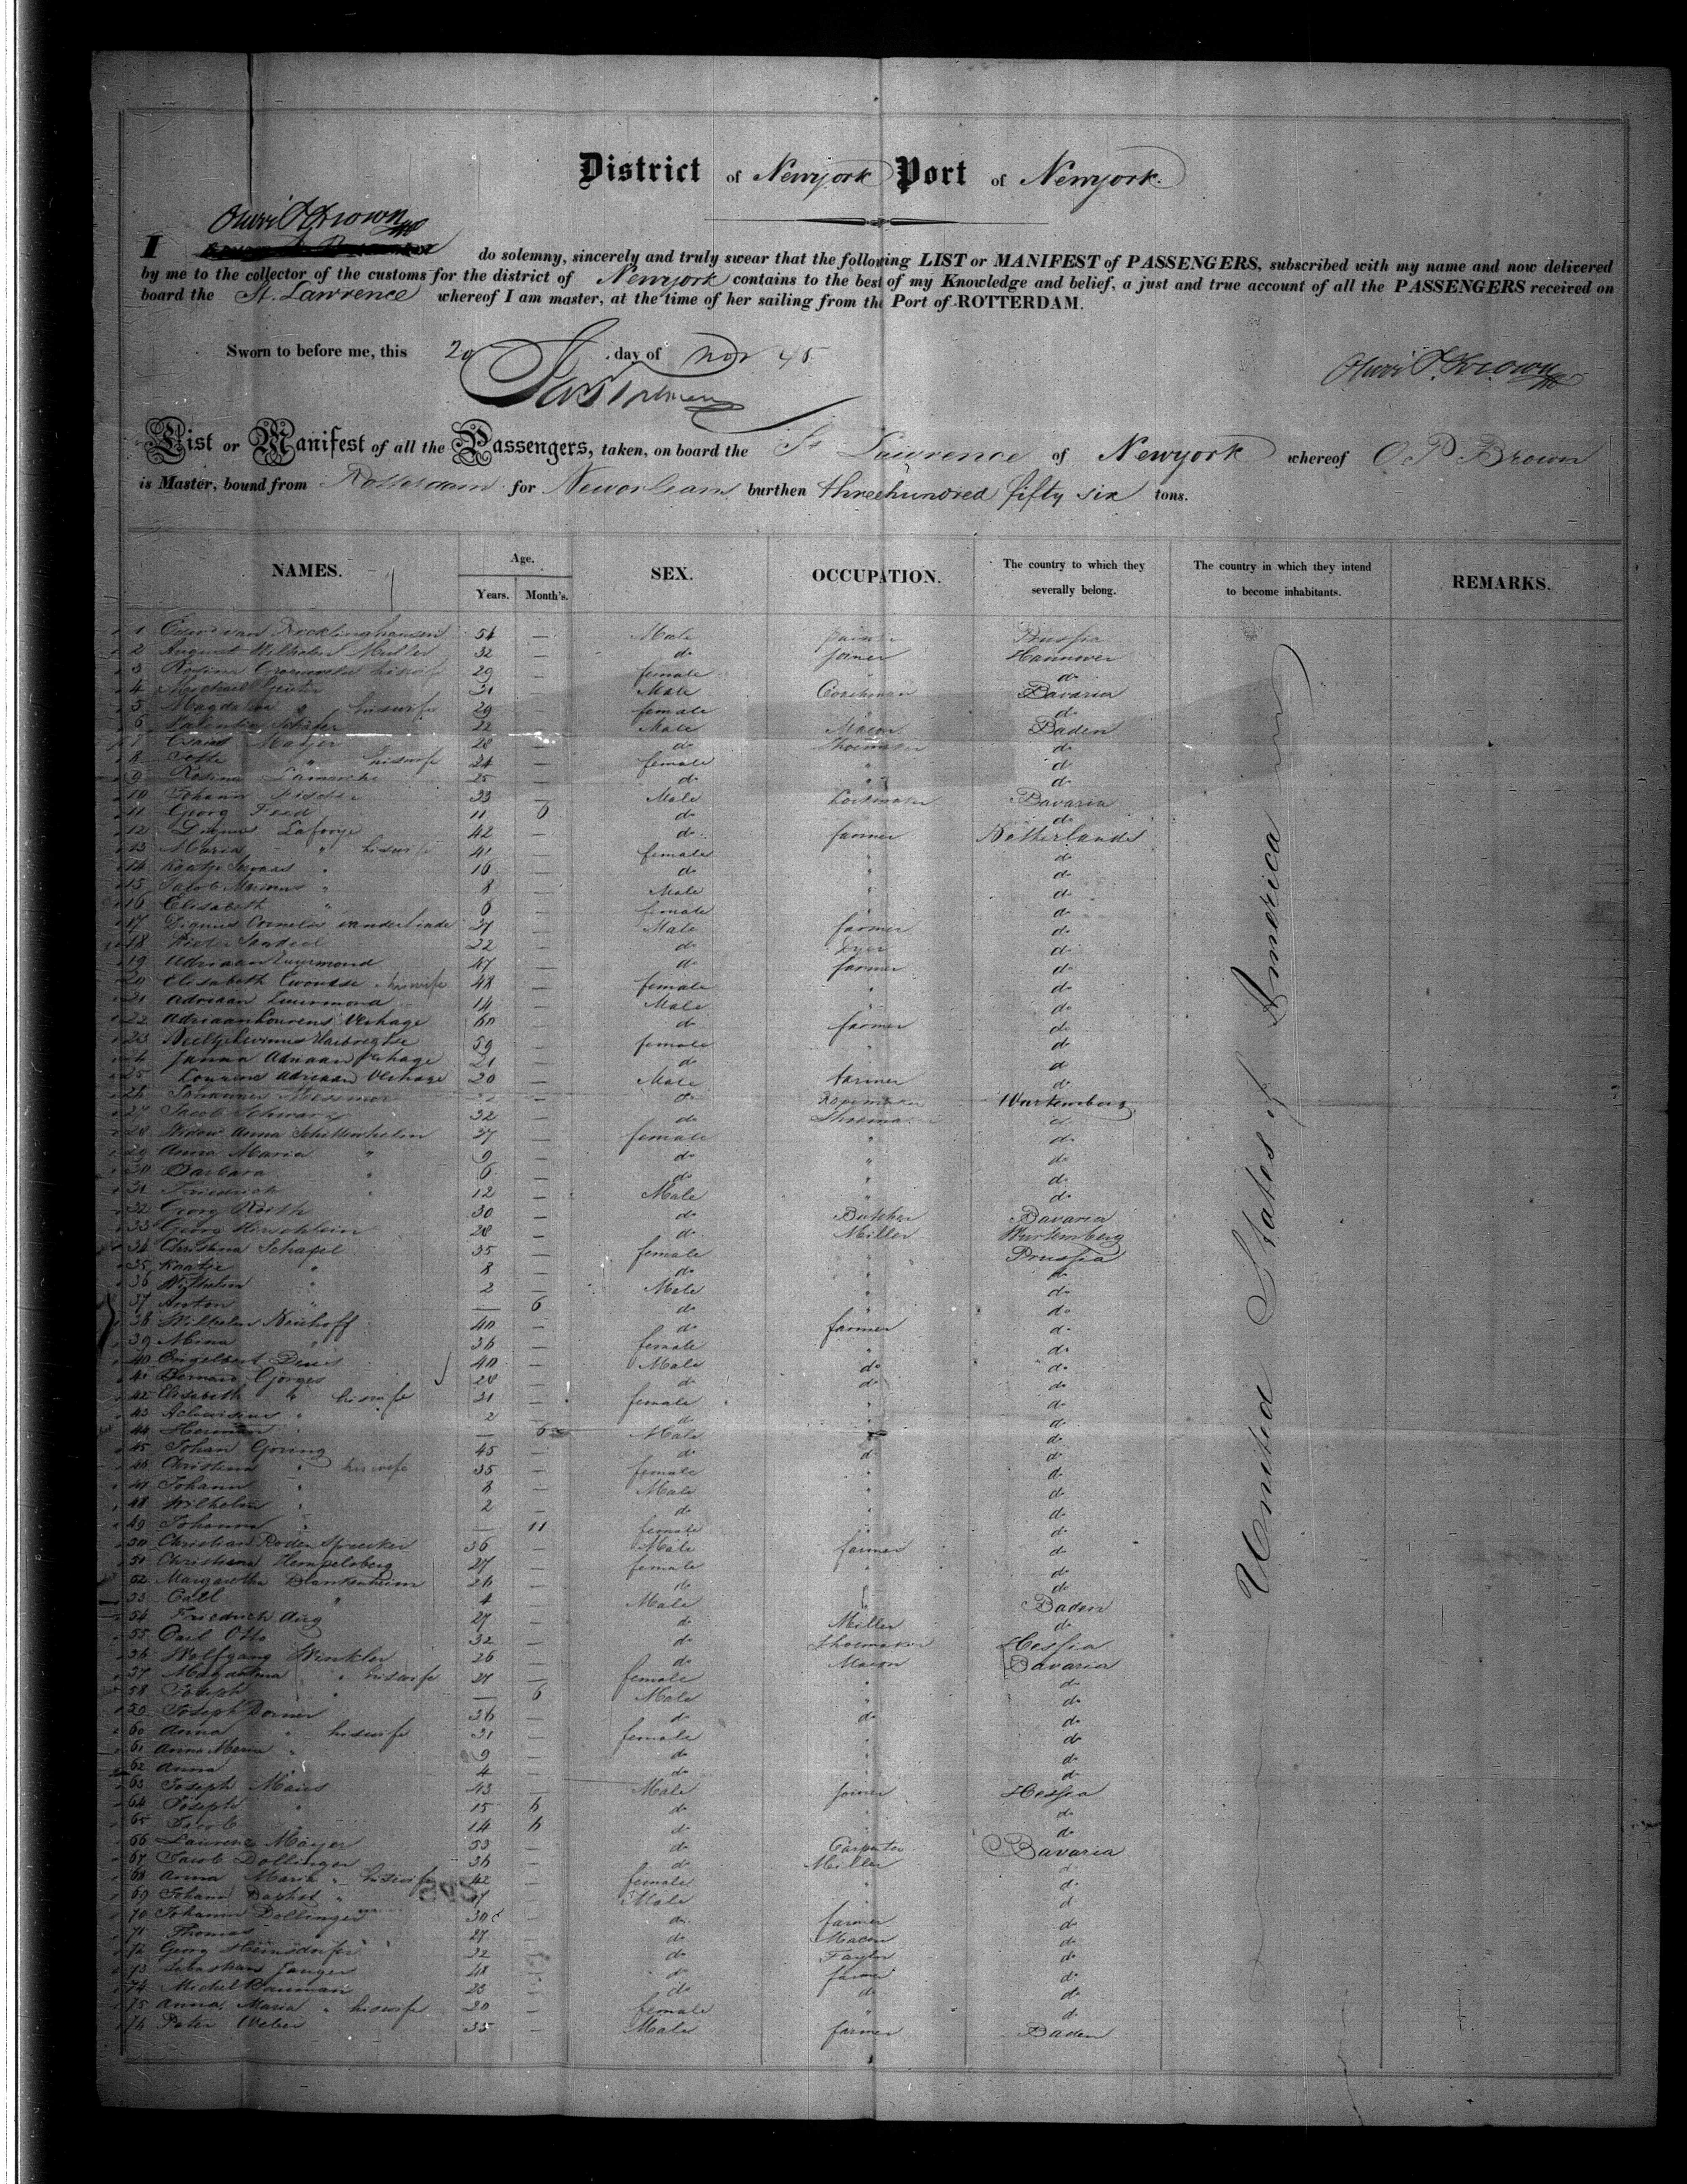 District of Newyork Port of Newyork.
I do solemny, sincerely and truly swear that the following LIST or MANIFEST of PASSENGERS, subscribed with my name and now delivered
by me to the collector of the customs for the district of Newyork contains to the best of my Knowledge and belief, a just and true account of all the PASSENGERS received on
board the St. Lawrence whereof I am master, at the time of her sailing from the Port of ROTTERDAM.
Sworn to before me, this 20 day of Nov 45
List or Manifest of all the Passengers, taken, on board the St Lawrence of Newyork whereof O P Brown
is Master, bound from Rotterdam for Neworleans burthen threehundred fifty six tons.
NAMES. Age. Years. Month's. SEX. OCCUPATION. The country to which they severally belong. The country in which they intend to become inhabitants. REMARKS.
United States of America
1 van Recklinghausen 54 — Male Prussia
2 August Wilhelm Muller 32 — do joiner Hannover
3 Rosina hiswife 29 — female " do
4 Michael 31 — Male Coachman Bavaria
5 Magdalena " hiswife 29 — female " do
6 Valentin Schäfer 22 — Male Mason Baden
7 Mayer 28 — do Shoemaker do
8 " hiswife 24 — female " do
9 Rosina Lamarche 25 — do " do
10 Johann Fischer 33 — Male Bavaria
11 Georg 11 6 do do
12 Laforge 42 — do farmer Netherlands
13 Maria " hiswife 41 — female " do
14 Kaatje " 16 — do " do
15 Jacob Marinus " 8 — Male " do
16 Elisabeth " 6 — female " do
17 Dignus Cornelis vanderlinde 37 — Male farmer do
18 Pieter 22 — do Dyer do
19 Adriaan Zuurmond 47 — do farmer do
20 Elisabeth hiswife 48 — female " do
21 Adriaan Zuurmond 14 — Male " do
22 Adriaan Lourens Verhage 60 — do farmer do
23 59 — female " do
24 Janna Adriaan Verhage 21 — do do
25 Lourens Adriaan Verhage 20 — Male farmer do
26 Johannes — do Ropemaker Wurtemberg
27 Jacob Schwarz 32 — do Shoemaker do
28 Widow Anna Schittenhelm 37 — female " do
29 Anna Maria " 9 — do " do
30 Barbara " 6 — do " do
31 Friedrich " 12 — Male " do
32 Georg Roth 30 — do Butcher Bavaria
33 Georg Hirschlein 28 — do Miller Wurtemberg
34 Christina Schapel 35 — female " Prussia
35 Kaatje " 8 — do " do
36 Wilhelm " 2 — Male " do
37 Anton " — 6 do " do
38 Wilhelm Neuhoff 40 — do farmer do
39 Mina " 36 — female " do
40 Engelbert Denis 40 — Male do do
41 Bernard Gorges 28 — do do do
42 Elisabeth " hiswife 31 — female " do
43 " 2 — do " do
44 Herman " — 6 Male " do
45 Johan Goring 45 — do do do
46 Christina " hiswife 35 — female " do
47 Johann " 8 — Male " do
48 Wilhelm " 2 — do " do
49 Johanna " — 11 female " do
50 Christian Rodenspreeker 36 — Male farmer do
51 Christiana Hempelsberg 27 — female " do
52 Margaretha Blankenheim 26 — do do
53 Carl " 4 — Male Baden
54 Friedrich Aug 27 — do Miller do
55 Carl Otto 32 — do Shoemaker Hessia
56 Wolfgang Winkler 26 — do Mason Bavaria
57 Magdalena " hiswife 27 — female " do
58 Joseph " — 6 Male " do
59 Joseph Dorner 36 — do do do
60 Anna " hiswife 31 — female " do
61 Anna Maria " 9 — do " do
62 Anna " 4 — do " do
63 Joseph Maier 43 — Male farmer Hessia
64 Joseph " 15 6 do " do
65 Jacob " 14 6 do " do
66 Laurenz Mayer 53 — do Carpenter Bavaria
67 Jacob Dollinger 36 — do Miller do
68 Anna Maria " hiswife 42 — female " do
69 Johann Baptist " — Male " do
70 Johann Dollinger 30 — do farmer do
71 Thomas " 27 — do Mason do
72 Georg 32 — do Taylor do
73 Sebastian 48 — do farmer do
74 Michel Bauman 23 — do do do
75 Anna Maria " hiswife 20 — female " do
76 Peter Weber 35 — Male farmer Baden